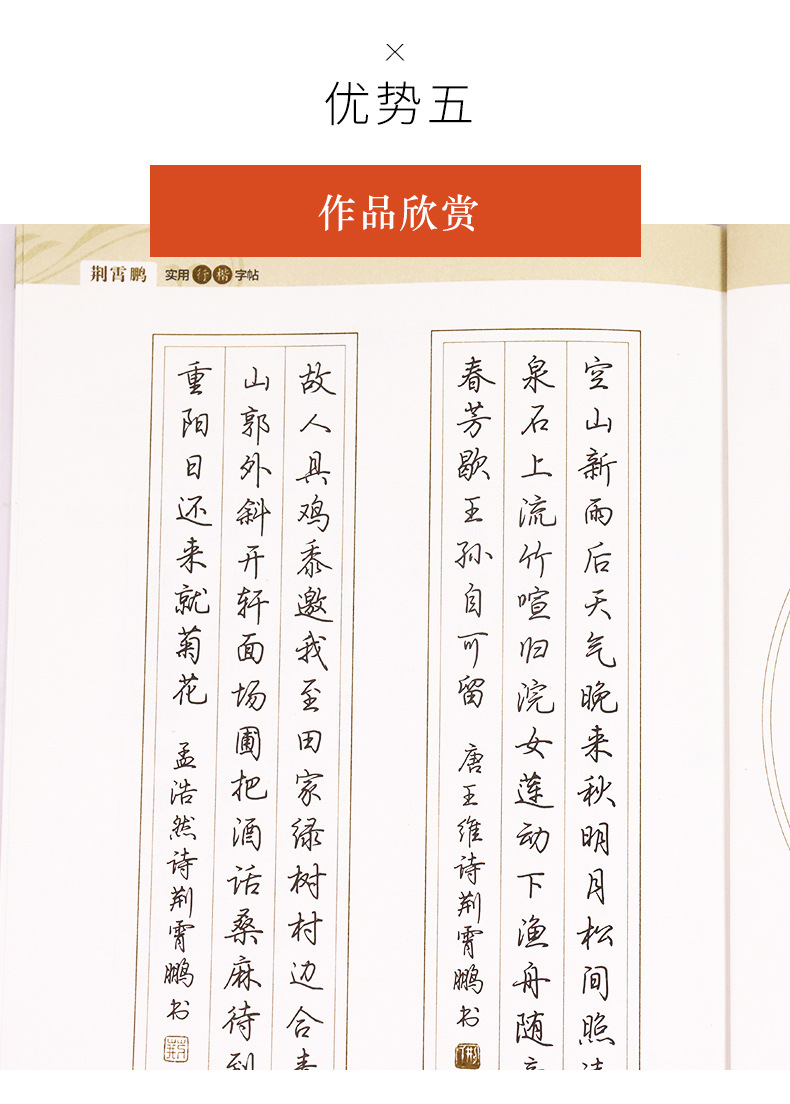 优势五
作品欣赏
荆霄鹏 实用行楷字帖
空山新雨后天气晚来秋明月松间照
泉石上流竹喧归浣女莲动下渔舟随
春芳歇王孙自可留 唐王维诗荆霄鹏书
故人具鸡黍邀我至田家绿树村边合
山郭外斜开轩面场圃把酒话桑麻待到
重阳日还来就菊花 孟浩然诗荆霄鹏书